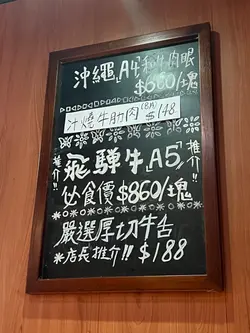 沖繩A4和牛肉眼
$660/塊
汁燒牛肋肉(8件) $148
推介!!
飛驒牛「A5」
推介!!
必食價$860/塊
嚴選厚切牛舌
*店長推介!! $188